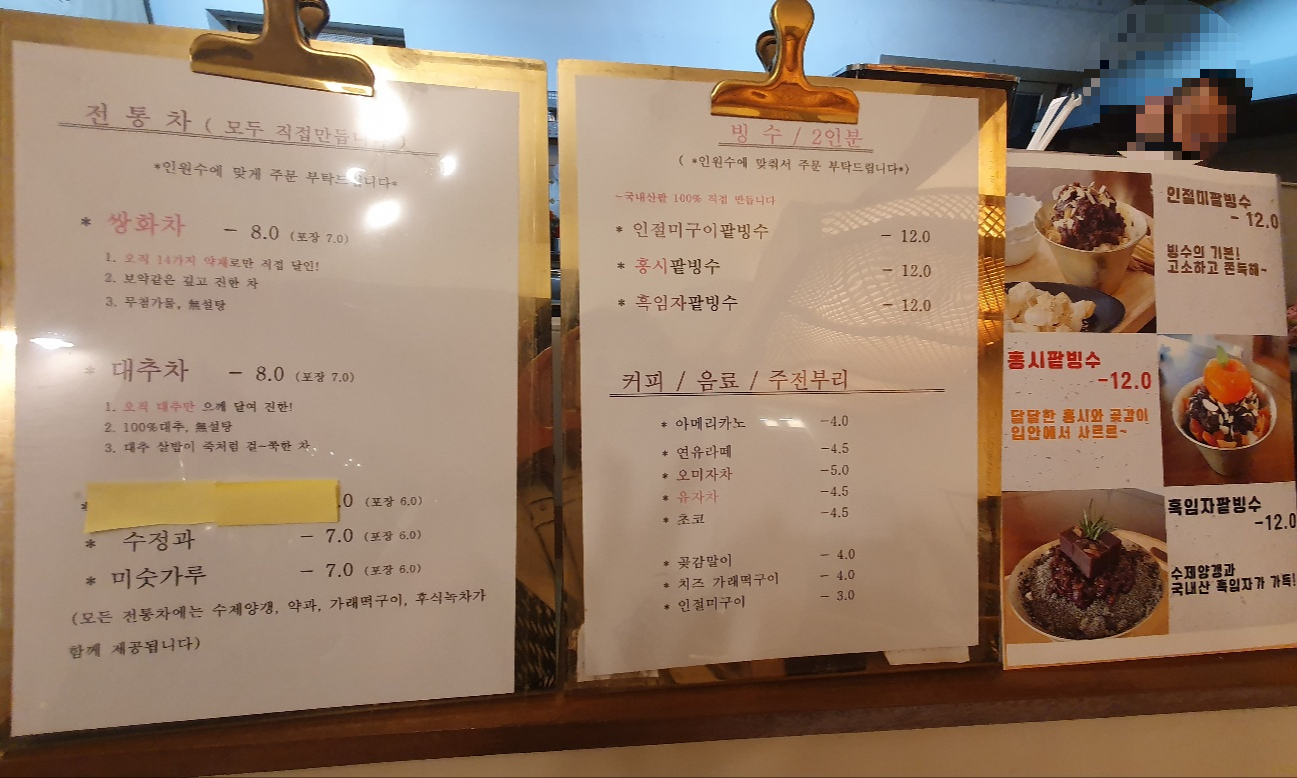 전 통 차 ( 모두 직접만듭니다 )
*인원수에 맞게 주문 부탁드립니다*
* 쌍화차 - 8.0 (포장 7.0)
1. 오직 14가지 약재로만 직접 달인!
2. 보약같은 깊고 진한 차
3. 무첨가물, 無설탕
* 대추차 - 8.0 (포장 7.0)
1. 오직 대추만 으께 달여 진한!
2. 100%대추, 無설탕
3. 대추 살밥이 죽처럼 걸~쭉한 차
* .0 (포장 6.0)
* 수정과 - 7.0 (포장 6.0)
* 미숫가루 - 7.0 (포장 6.0)
(모든 전통차에는 수제양갱, 약과, 가래떡구이, 후식녹차가
함께 제공됩니다)
빙 수 / 2인분
( *인원수에 맞춰서 주문 부탁드립니다*)
~국내산팥 100% 직접 만듭니다
* 인절미구이팥빙수 - 12.0
* 홍시팥빙수 - 12.0
* 흑임자팥빙수 - 12.0
커피 / 음료 / 주전부리
* 아메리카노 -4.0
* 연유라떼 -4.5
* 오미자차 -5.0
* 유자차 -4.5
* 초코 -4.5
* 곶감말이 - 4.0
* 치즈 가래떡구이 - 4.0
* 인절미구이 - 3.0
인절미팥빙수
- 12.0
빙수의 기본!
고소하고 쫀득해~
홍시팥빙수
-12.0
달달한 홍시와 곶감이
입안에서 사르르~
흑임자팥빙수
-12.0
수제양갱과
국내산 흑임자가 가득!